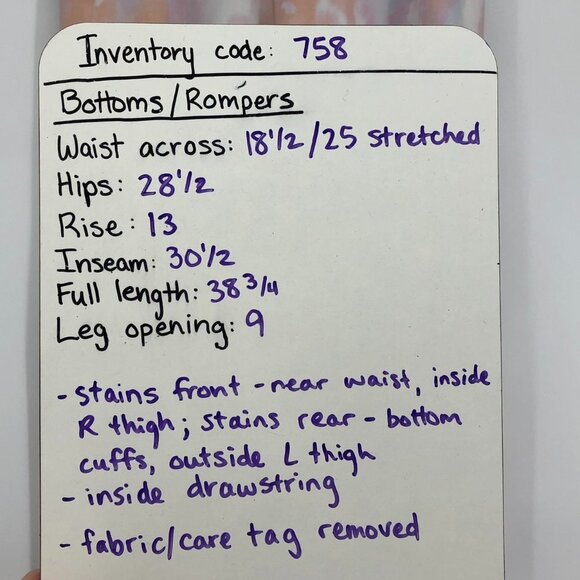 Inventory code: 758
Bottoms/Rompers
Waist across: 18 1/2 /25 stretched
Hips: 28 1/2
Rise: 13
Inseam: 30 1/2
Full length: 38 3/4
Leg opening: 9
- stains front - near waist, inside
R thigh; stains rear - bottom
cuffs, outside L thigh
- inside drawstring
- fabric/care tag removed